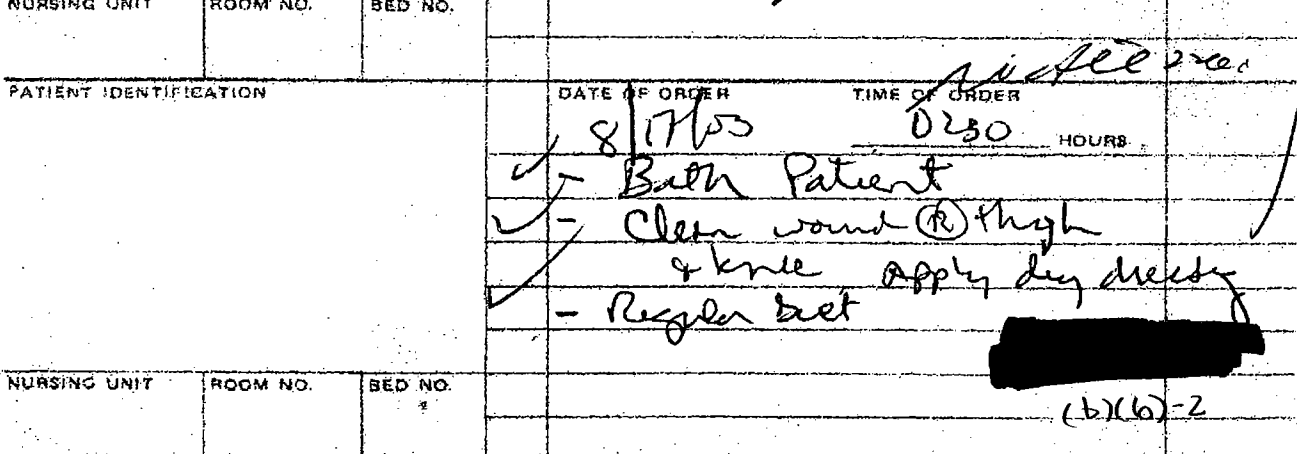 NURSING UNIT ROOM NO. BED NO.
PATIENT IDENTIFICATION
DATE OF ORDER TIME OF ORDER
8/17/03 0230 HOURS
- Bath Patient
- Clean wound Ⓡ thigh
& knee Apply dry dressing
- Regular Diet
NURSING UNIT ROOM NO. BED NO.
(b)(6)-2